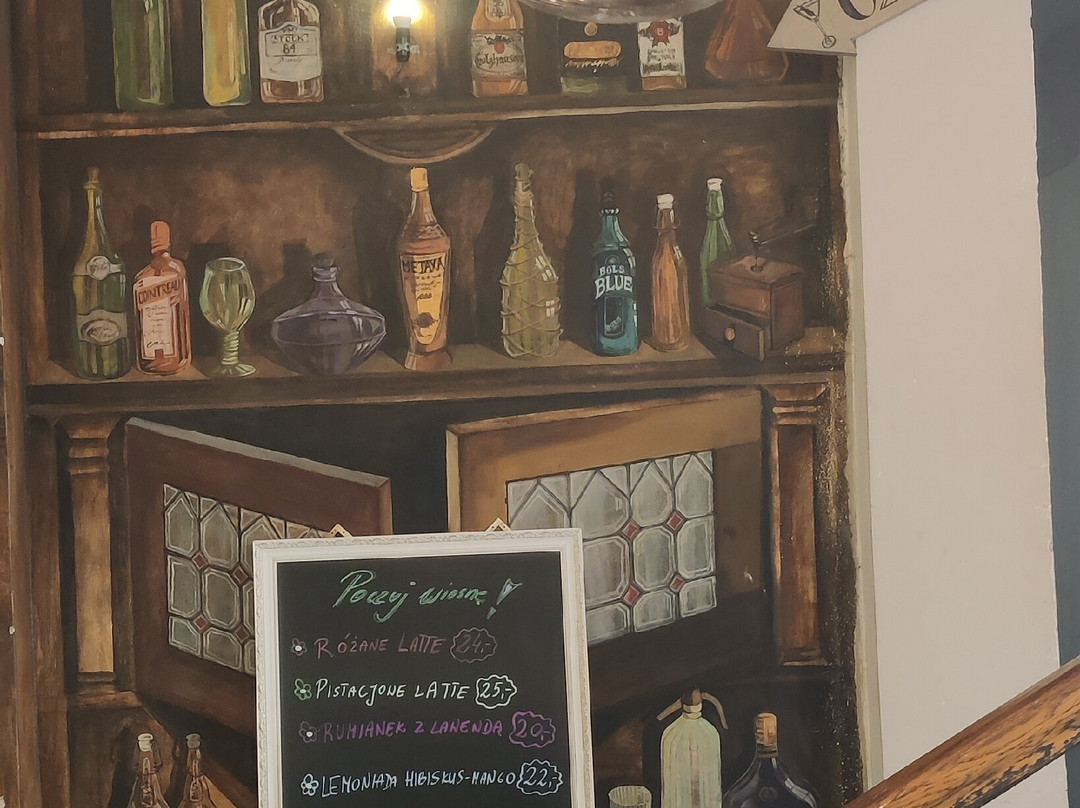 STOCK
84
COINTREAU
METAXA
BOLS
BLUE
Poczuj wiosnę!
RÓŻANE LATTE 24,-
PISTACJOWE LATTE 25,-
RUMIANEK Z LAWENDĄ 20,-
LEMONIADA HIBISKUS-MANGO 22,-